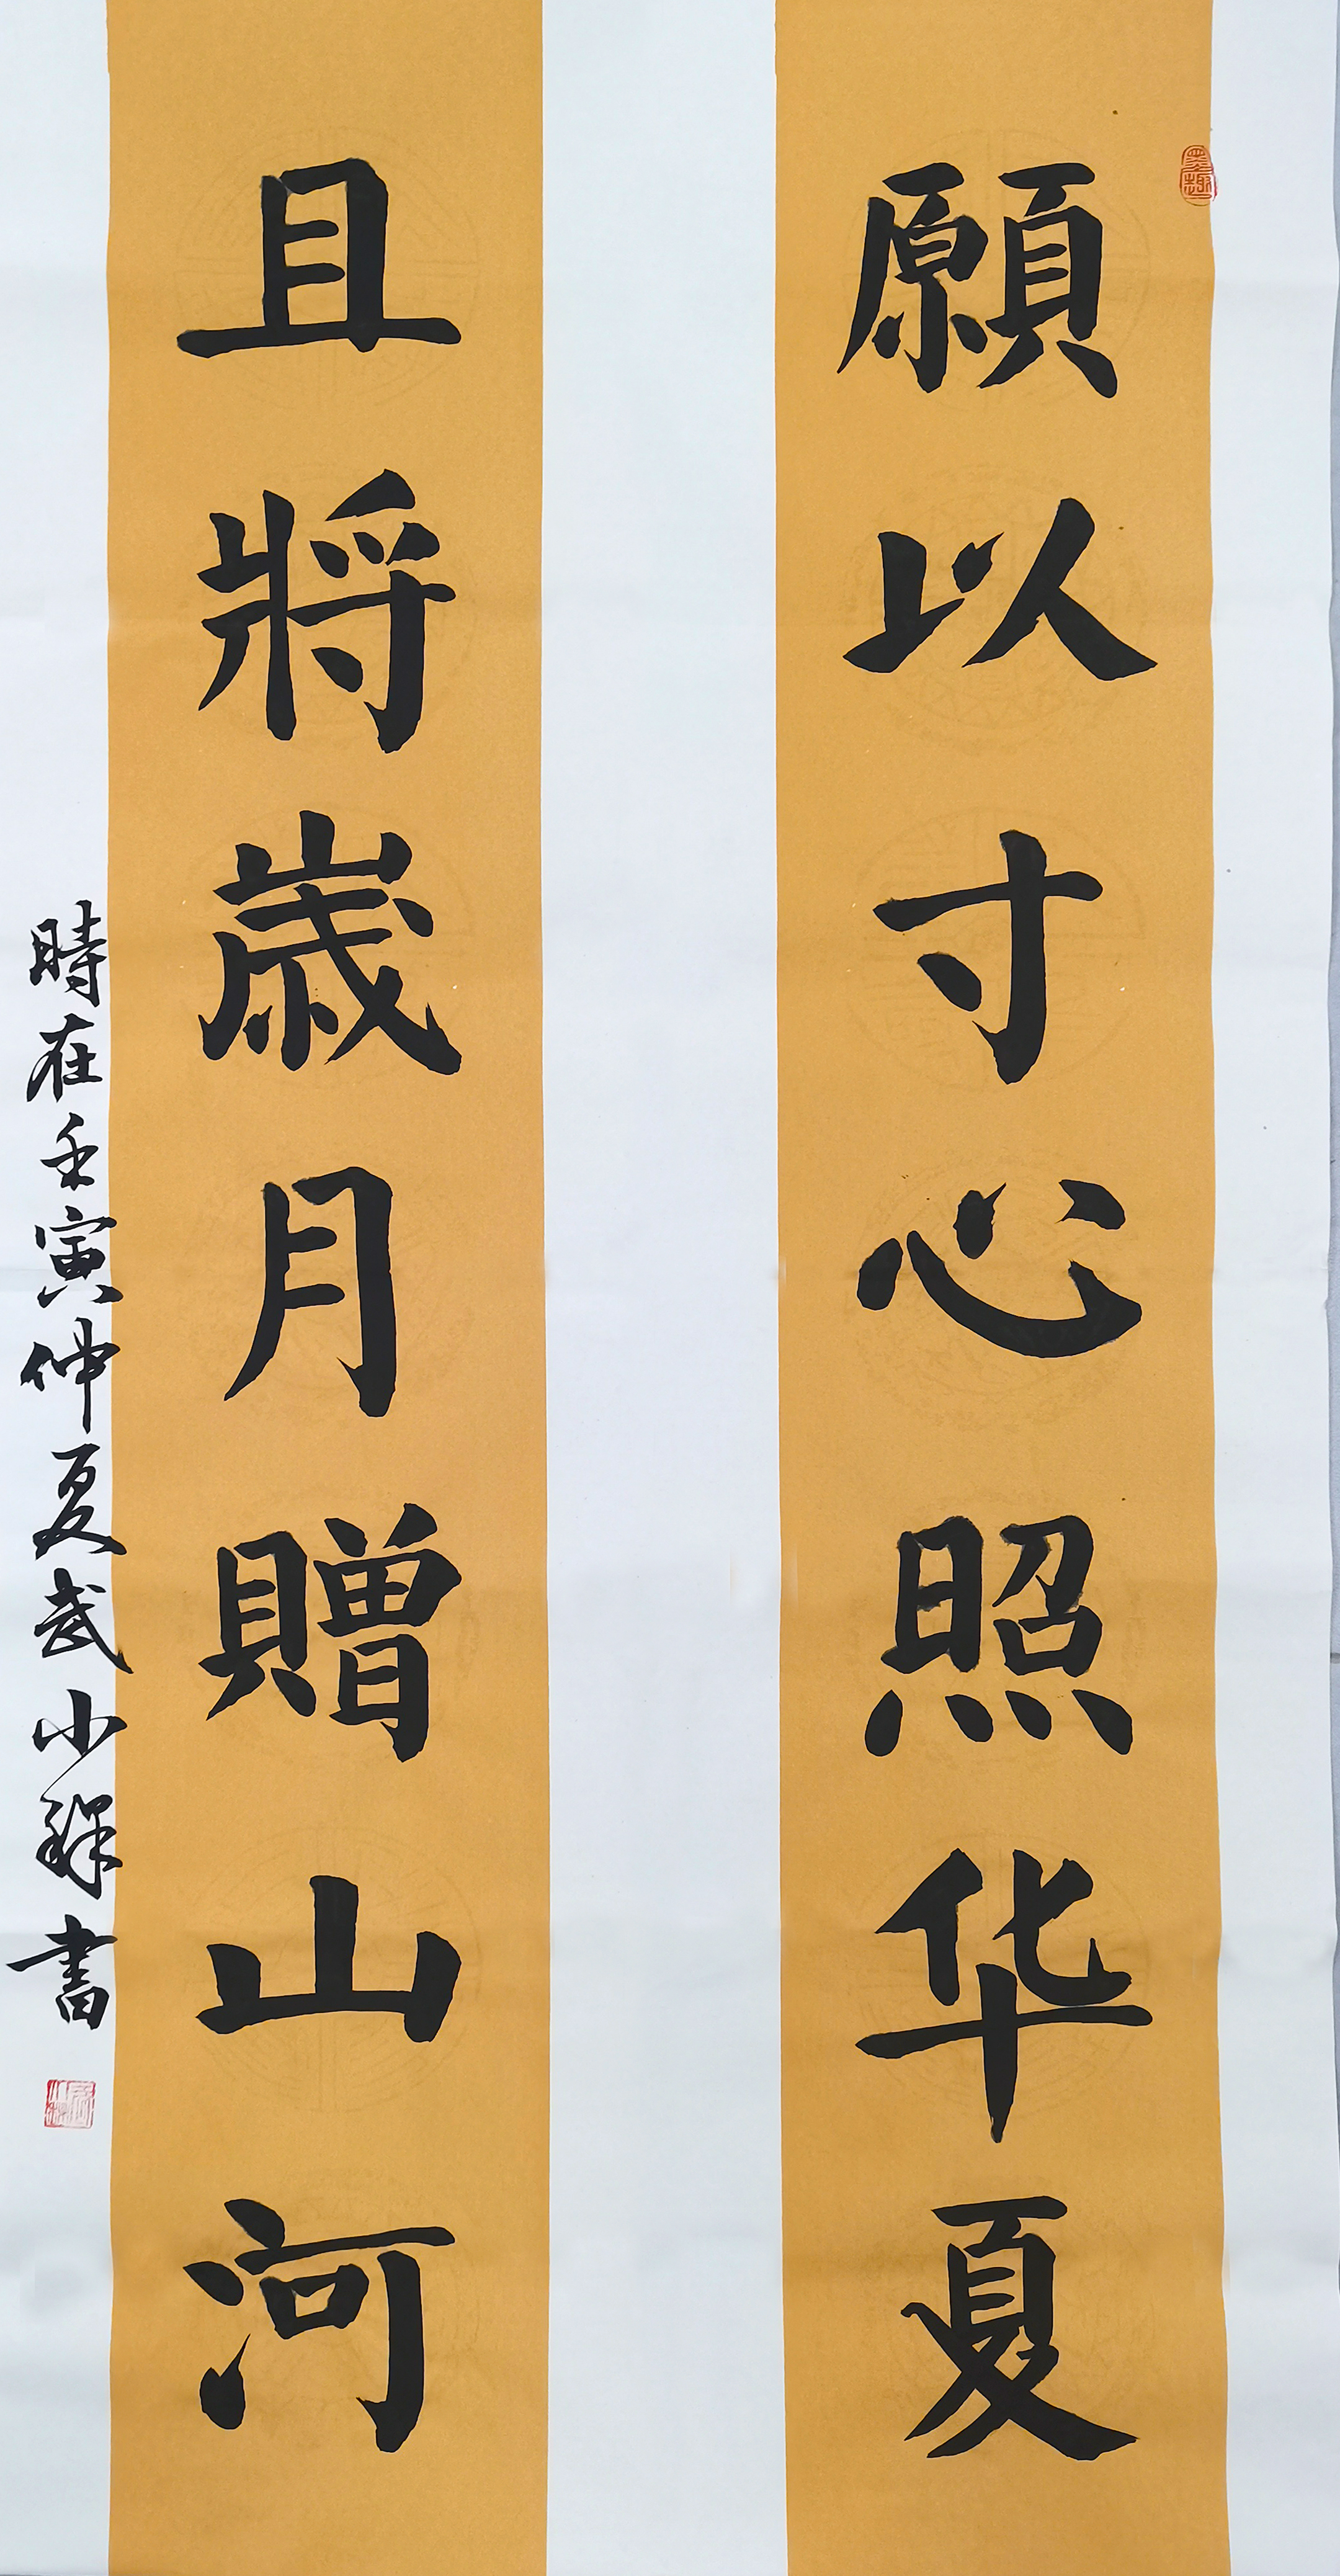 願以寸心照华夏
且將歳月贈山河
時在壬寅仲夏武小稱書